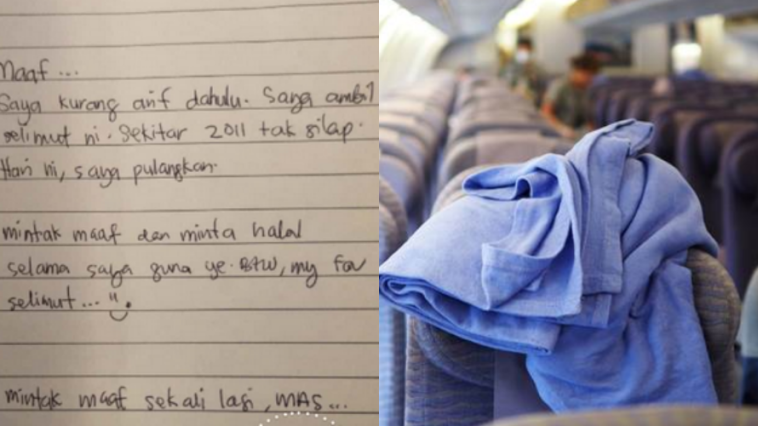 Maaf ...
Saya kurang arif dahulu. Saya ambil
selimut ni. Sekitar 2011 tak silap.
Hari ni, saya pulangkan.
mintak maaf dan minta halal
selama saya guna ye. BTW, my fav
selimut ... ".
mintak maaf sekali lagi, MAS...